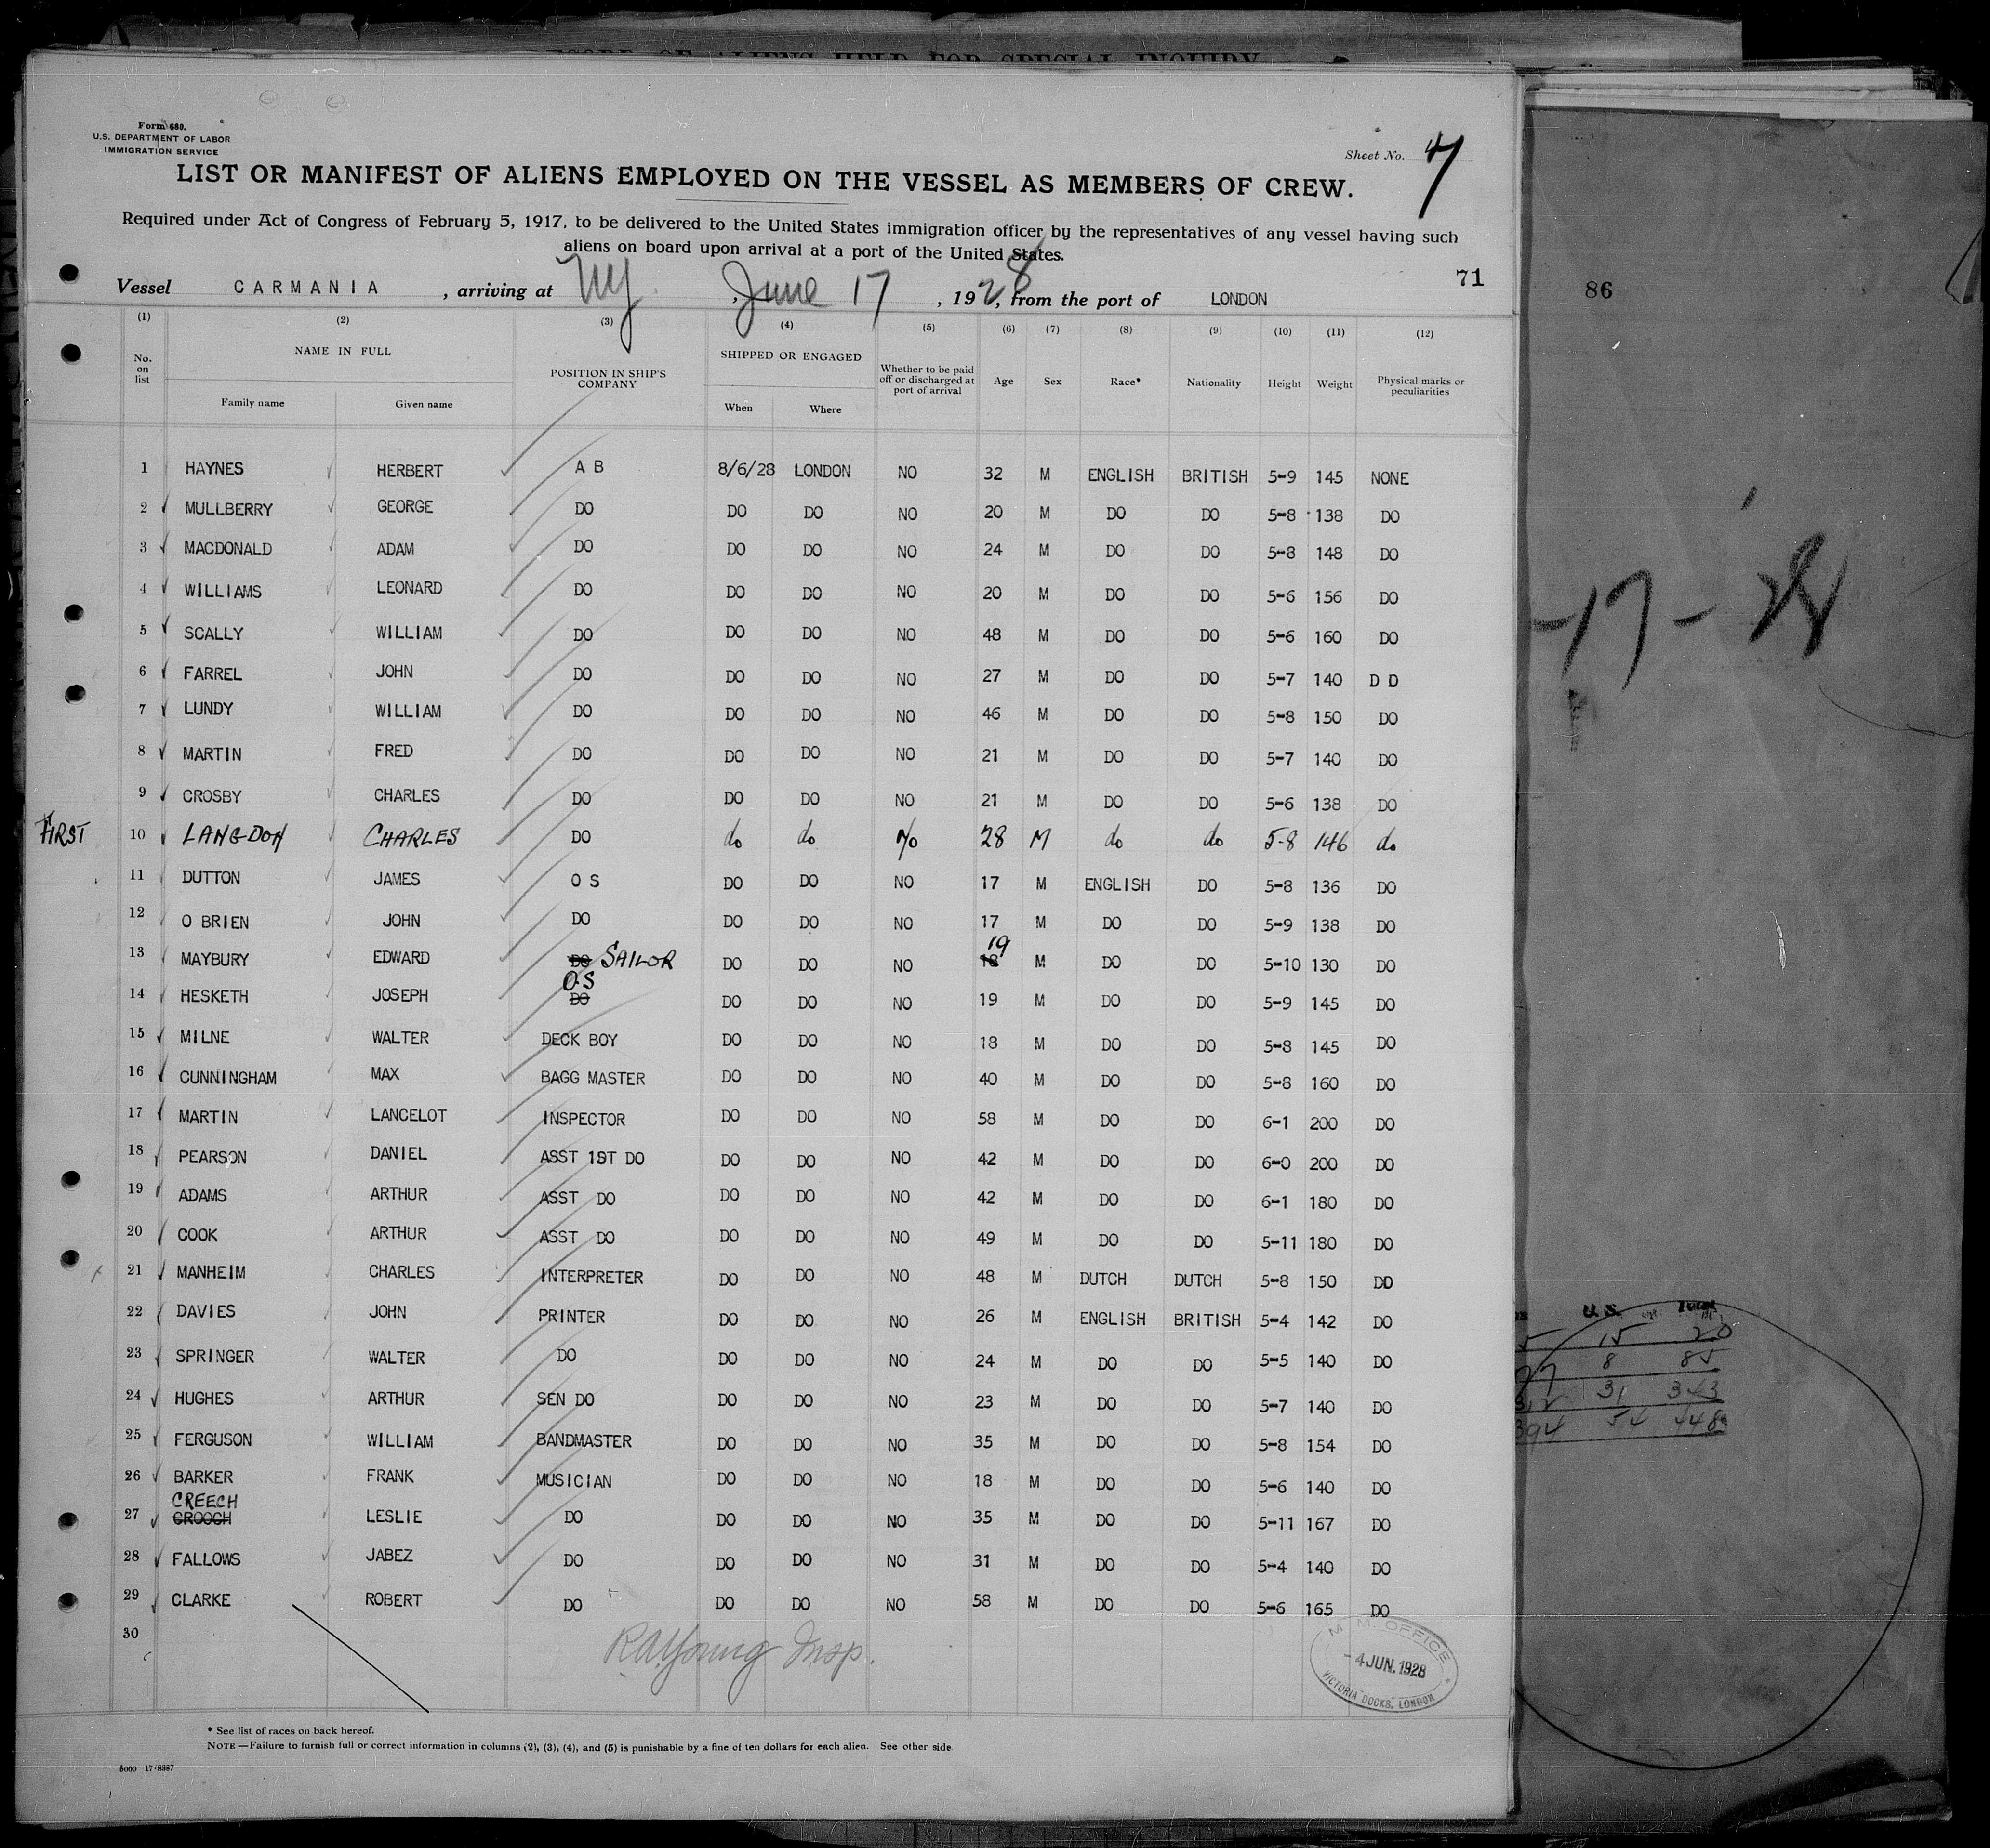 RECORD OF ALIENS HELD FOR SPECIAL INQUIRY
Form 680.
U.S. DEPARTMENT OF LABOR
IMMIGRATION SERVICE
Sheet No. 7
LIST OR MANIFEST OF ALIENS EMPLOYED ON THE VESSEL AS MEMBERS OF CREW.
Required under Act of Congress of February 5, 1917, to be delivered to the United States immigration officer by the representatives of any vessel having such
aliens on board upon arrival at a port of the United States.
71
Vessel CARMANIA, arriving at NY, June 17, 1928, from the port of LONDON
(1) (2) (3) (4) (5) (6) (7) (8) (9) (10) (11) (12)
No. on list NAME IN FULL POSITION IN SHIP'S COMPANY SHIPPED OR ENGAGED Whether to be paid off or discharged at port of arrival Age Sex Race* Nationality Height Weight Physical marks or peculiarities
Family name Given name When Where
1 HAYNES HERBERT A B 8/6/28 LONDON NO 32 M ENGLISH BRITISH 5-9 145 NONE
2 MULLBERRY GEORGE DO DO DO NO 20 M DO DO 5-8 138 DO
3 MACDONALD ADAM DO DO DO NO 24 M DO DO 5-8 148 DO
4 WILLIAMS LEONARD DO DO DO NO 20 M DO DO 5-6 156 DO
5 SCALLY WILLIAM DO DO DO NO 48 M DO DO 5-6 160 DO
6 FARREL JOHN DO DO DO NO 27 M DO DO 5-7 140 D D
7 LUNDY WILLIAM DO DO DO NO 46 M DO DO 5-8 150 DO
8 MARTIN FRED DO DO DO NO 21 M DO DO 5-7 140 DO
9 CROSBY CHARLES DO DO DO NO 21 M DO DO 5-6 138 DO
FIRST 10 LANGDON CHARLES DO do do No 28 M do do 5-8 146 do
11 DUTTON JAMES O S DO DO NO 17 M ENGLISH DO 5-8 136 DO
12 O BRIEN JOHN DO DO DO NO 17 M DO DO 5-9 138 DO
13 MAYBURY EDWARD DO SAILOR DO DO NO 18 19 M DO DO 5-10 130 DO
14 HESKETH JOSEPH DO O.S DO DO NO 19 M DO DO 5-9 145 DO
15 MILNE WALTER DECK BOY DO DO NO 18 M DO DO 5-8 145 DO
16 CUNNINGHAM MAX BAGG MASTER DO DO NO 40 M DO DO 5-8 160 DO
17 MARTIN LANCELOT INSPECTOR DO DO NO 58 M DO DO 6-1 200 DO
18 PEARSON DANIEL ASST 1ST DO DO DO NO 42 M DO DO 6-0 200 DO
19 ADAMS ARTHUR ASST DO DO DO NO 42 M DO DO 6-1 180 DO
20 COOK ARTHUR ASST DO DO DO NO 49 M DO DO 5-11 180 DO
21 MANHEIM CHARLES INTERPRETER DO DO NO 48 M DUTCH DUTCH 5-8 150 DD
22 DAVIES JOHN PRINTER DO DO NO 26 M ENGLISH BRITISH 5-4 142 DO
23 SPRINGER WALTER DO DO DO NO 24 M DO DO 5-5 140 DO
24 HUGHES ARTHUR SEN DO DO DO NO 23 M DO DO 5-7 140 DO
25 FERGUSON WILLIAM BANDMASTER DO DO NO 35 M DO DO 5-8 154 DO
26 BARKER FRANK MUSICIAN DO DO NO 18 M DO DO 5-6 140 DO
CREECH
27 CROOCH LESLIE DO DO DO NO 35 M DO DO 5-11 167 DO
28 FALLOWS JABEZ DO DO DO NO 31 M DO DO 5-4 140 DO
29 CLARKE ROBERT DO DO DO NO 58 M DO DO 5-6 165 DO
30
R.A. Young Insp.
M. M. OFFICE
-4 JUN. 1928
VICTORIA DOCKS, LONDON
* See list of races on back hereof.
NOTE—Failure to furnish full or correct information in columns (2), (3), (4), and (5) is punishable by a fine of ten dollars for each alien. See other side
5000 17-8387
86
-17-28
U.S. Total
5 15 20
77 8 85
312 31 343
394 54 448